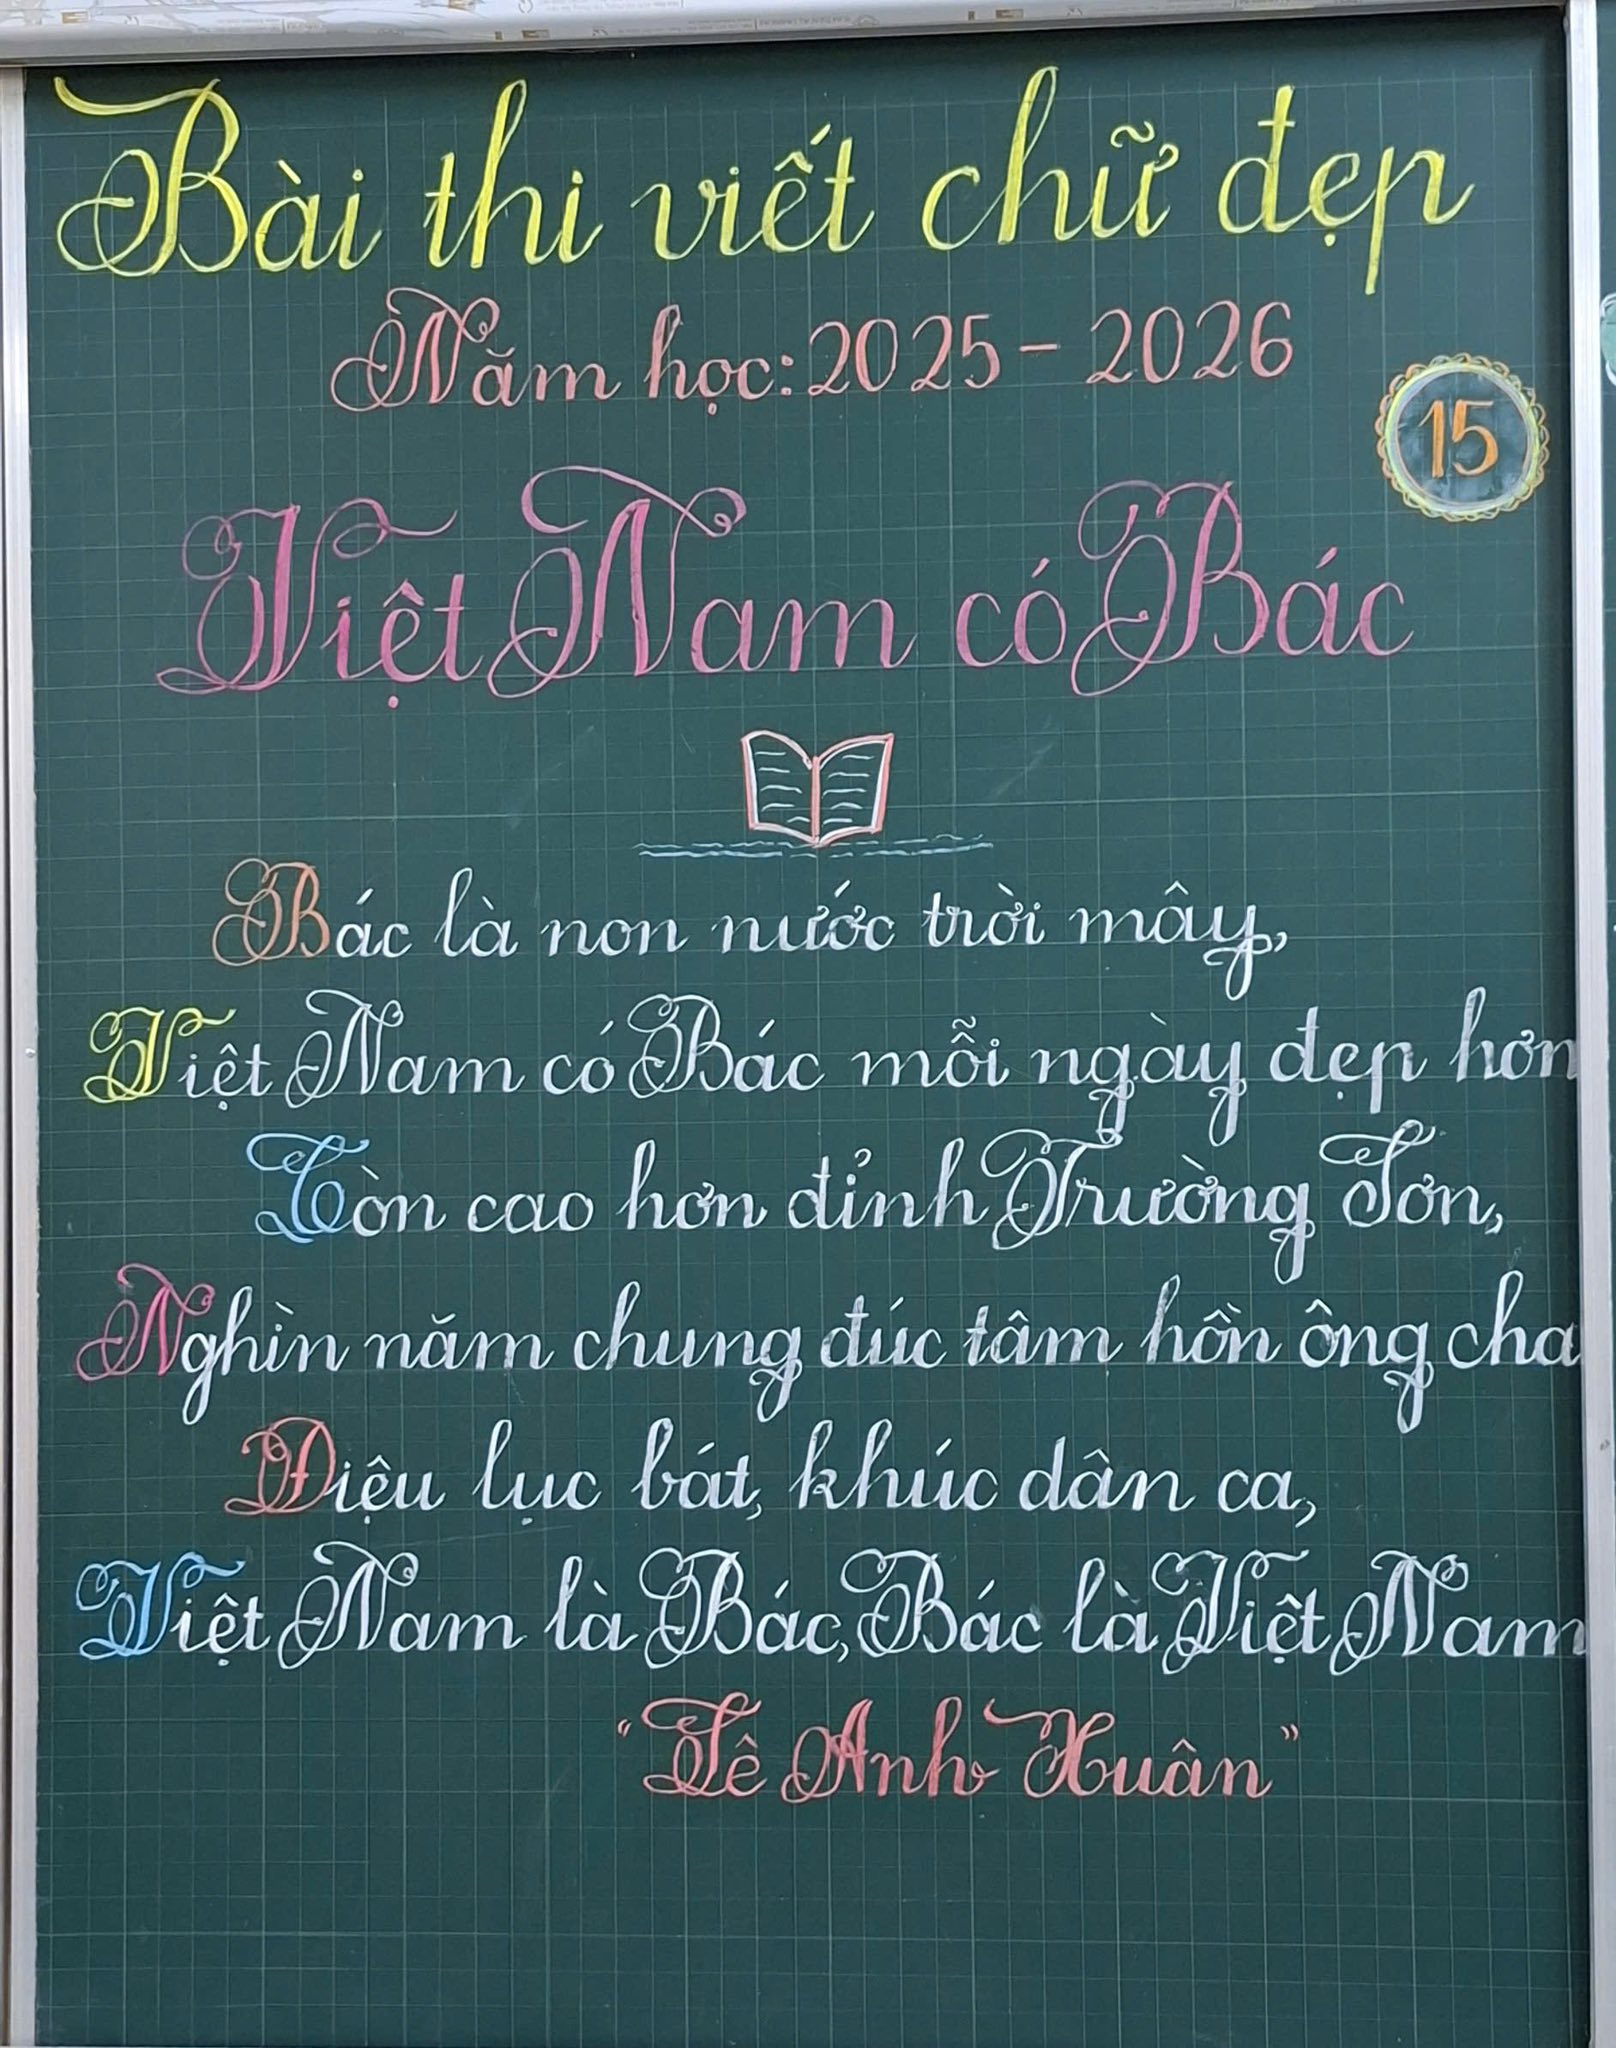 Bài thi viết chữ đẹp
Năm học: 2025 - 2026
15
Việt Nam có Bác
Bác là non nước trời mây,
Việt Nam có Bác mỗi ngày đẹp hơn
Còn cao hơn đỉnh Trường Sơn,
Nghìn năm chung đúc tâm hồn ông cha
Điệu lục bát, khúc dân ca,
Việt Nam là Bác, Bác là Việt Nam
"Lê Anh Xuân"